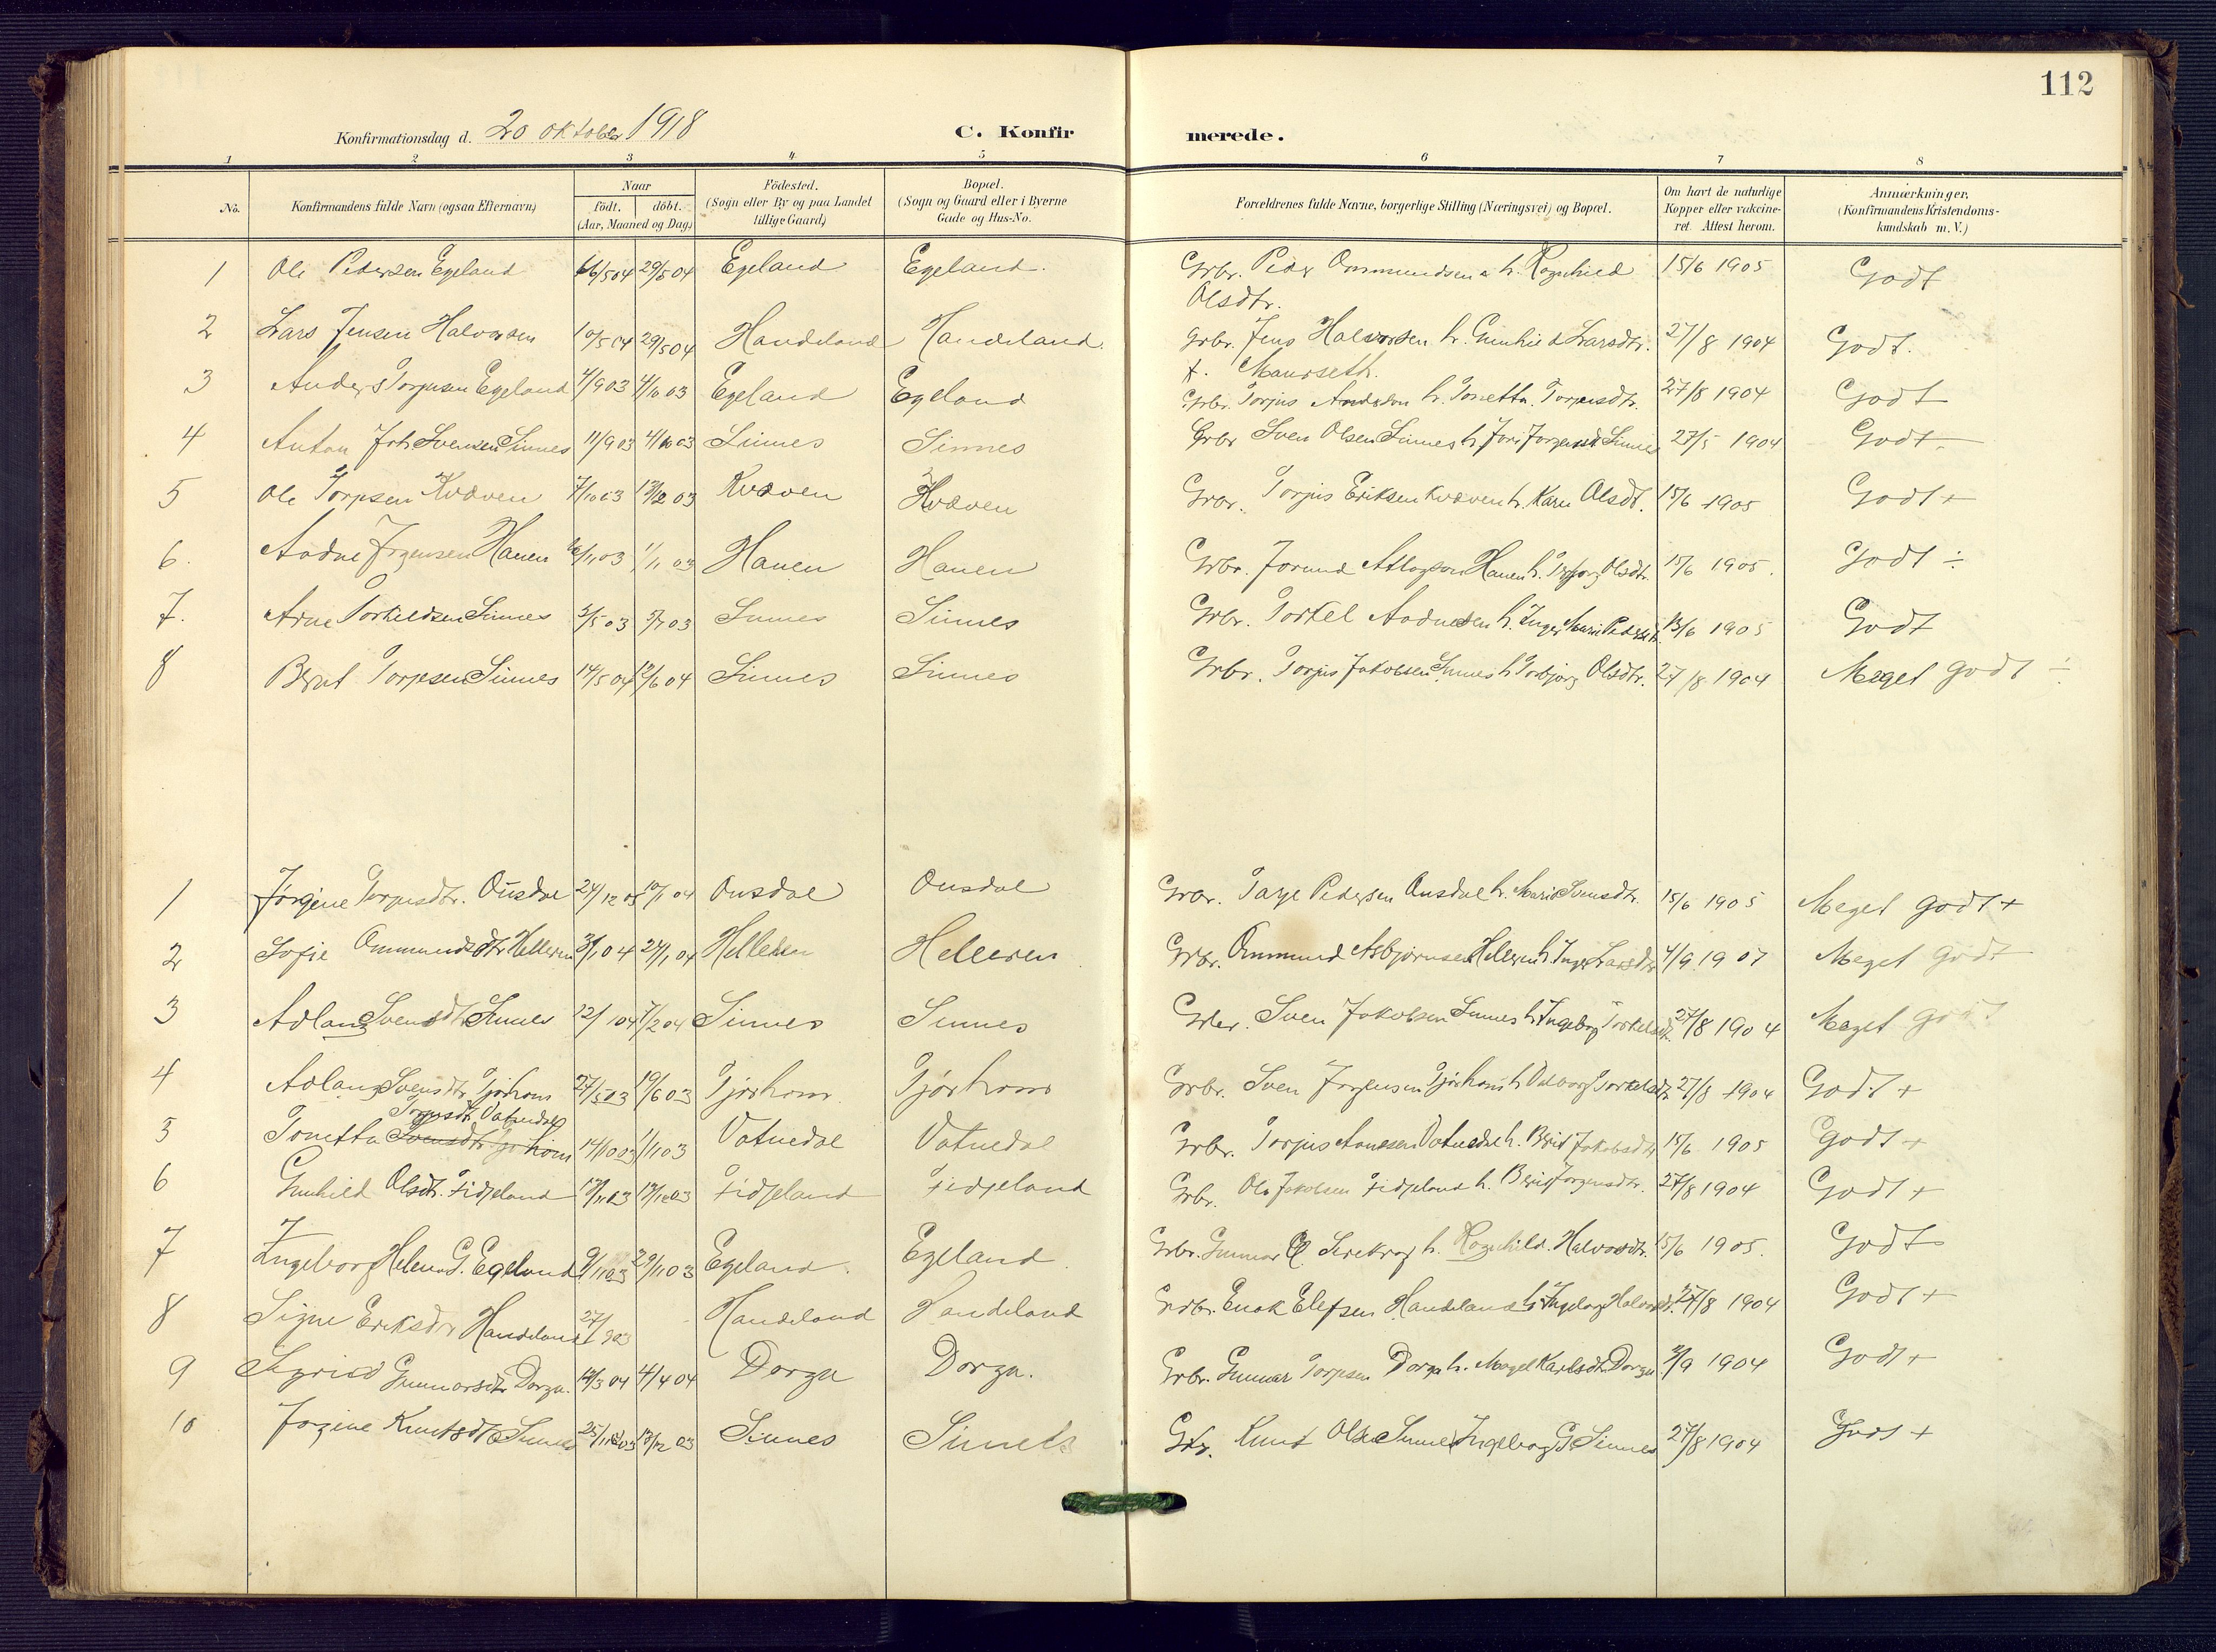 112
Konfirmationsdag d. 20 oktober 1918
C. Konfirmerede.
1 2 3 4 5 6 7 8
No.
Konfirmandens fulde Navn (ogsaa Efternavn)
Naar
födt. döbt.
(Aar, Maaned og Dag)
Födested.
(Sogn eller By og paa Landet
tillige Gaard)
Bopæl.
(Sogn og Gaard eller i Byerne
Gade og Hus-No.
Forældrenes fulde Navne, borgerlige Stilling (Næringsvei) og Bopæl.
Om havt de naturlige
Kopper eller vakcine-
ret. Attest herom.
Anmærkninger,
(Konfirmandens Kristendoms-
kundskab m. V.)
1 Ole Pedersen Egeland 16/5 04 29/5 04 Egeland Egeland. Grbr. Peder Ommundsen h. Ragnhild 15/6 1905 Godt
Olsdtr.
2 Lars Jensen Halvorsen 10/5 04 29/5 04 Handeland Handeland. Grbr. Jens Halvorsen h. Gunhild Larsdtr. 27/8 1904 Godt.
3 Anders Torjusen Egeland 4/9 03 4/10 03 Egeland Egeland Grbr. Torjus h. Tonetta Torjusdtr. 27/8 1904 Godt
4 Anton Joh Svensen Sinnes 11/9 03 4/10 03 Sinnes Sinnes Grbr Sven Olsen Sinnes h. Sinnes 27/5 1904 Godt
5 Ole Torjusen Kvæven 7/10 03 Kvæven Kvæven Grbr. Torjus Eriksen Kvæven h. Karn Olsdt. 15/6 1905 Godt+
6. Aadne Jørgensen Hauen 03 1/11 03 Hauen Hauen Grbr. Jorund Atlagsen Hauen h. Olsdtr. 15/6 1905. Godt ÷
7. Arne Torkeldsen Sinnes 3/5 03 5/7 03 Sinnes Sinnes Grbr. Torkel Aadnesen h. Inger Marie Pedersdt. 15/6 1905 Godt
8 Bernt Torjesen Sinnes 14/5 04 12/6 04 Sinnes Sinnes Grbr. Torjus Jakobsen Sinnes h. Torbjørg Olsdtr. 27/8 1904 Meget godt ÷
1 Jørgine Torjusdtr. Ousdal 24/12 03 10/1 04 Ousdal Ousdal Grbr. Tarje Pedersen Ousdal h. Marie Svensdtr. 15/6 1905 Meget godt +
2 Sofie Ommundsdtr Helleren 3/1 04 24/1 04 Helleren Helleren Grbr. Ommund Asbjørnsen Helleren h. Inger Larsdtr 4/9 1907 Meget godt
3 Adlaug Svensdtr Sinnes 12/1 04 7/2 04 Sinnes Sinnes Grbr. Sven Jakobsen Sinnes h. Ingeborg Torkelsdt. 27/8 1904 Meget godt
4 Adlaug Svensdtr Tjørhom 27/5 03 19/6 03 Tjørhom. Tjørhom Grbr. Sven Jørgensen Tjørhom h. Valborg Torkelsdtr 27/8 1904 Godt +
Torjusdtr. Vatnedal
5 Tonetta Svensdtr Tjørhom 14/10 03 1/11 03 Vatnedal Vatnedal Grbr. Torjus Aanesen Vatnedal h. Berit Jakobsdtr 15/6 1905 Godt +
6 Gunhild Olsdtr. Fidjeland Fidjeland Fidjeland Grbr. Ole Jakobsen Fidjeland h. Berit Jørgensdtr. 27/8 1904 Godt +
7 Ingeborg Helene G. Egeland 9/11 03 29/11 03 Egeland. Egeland. Grbr. Gunnar h. Ragnhild. Halvorsdtr. 15/6 1905. Godt
8 Signe Eriksdtr Handeland Handeland Handeland Grbr. Enok Elefsen Handeland h. Ingeborg 27/8 1904 Godt +
9 Syrid Gunnarsdtr Dorga. 12/3 04 4/4 04 Dorga Dorga. Grbr. Gunnar Torjesen Dorga h. Magel Karlsdtr. Dorga 1904 Godt +
10 Jørgine Knutsdtr Sinnes 13/12 03 Sinnes Sinnes Knut Olsen Sinnes Ingeborg G. Sinnes 27/8 1904 Godt +